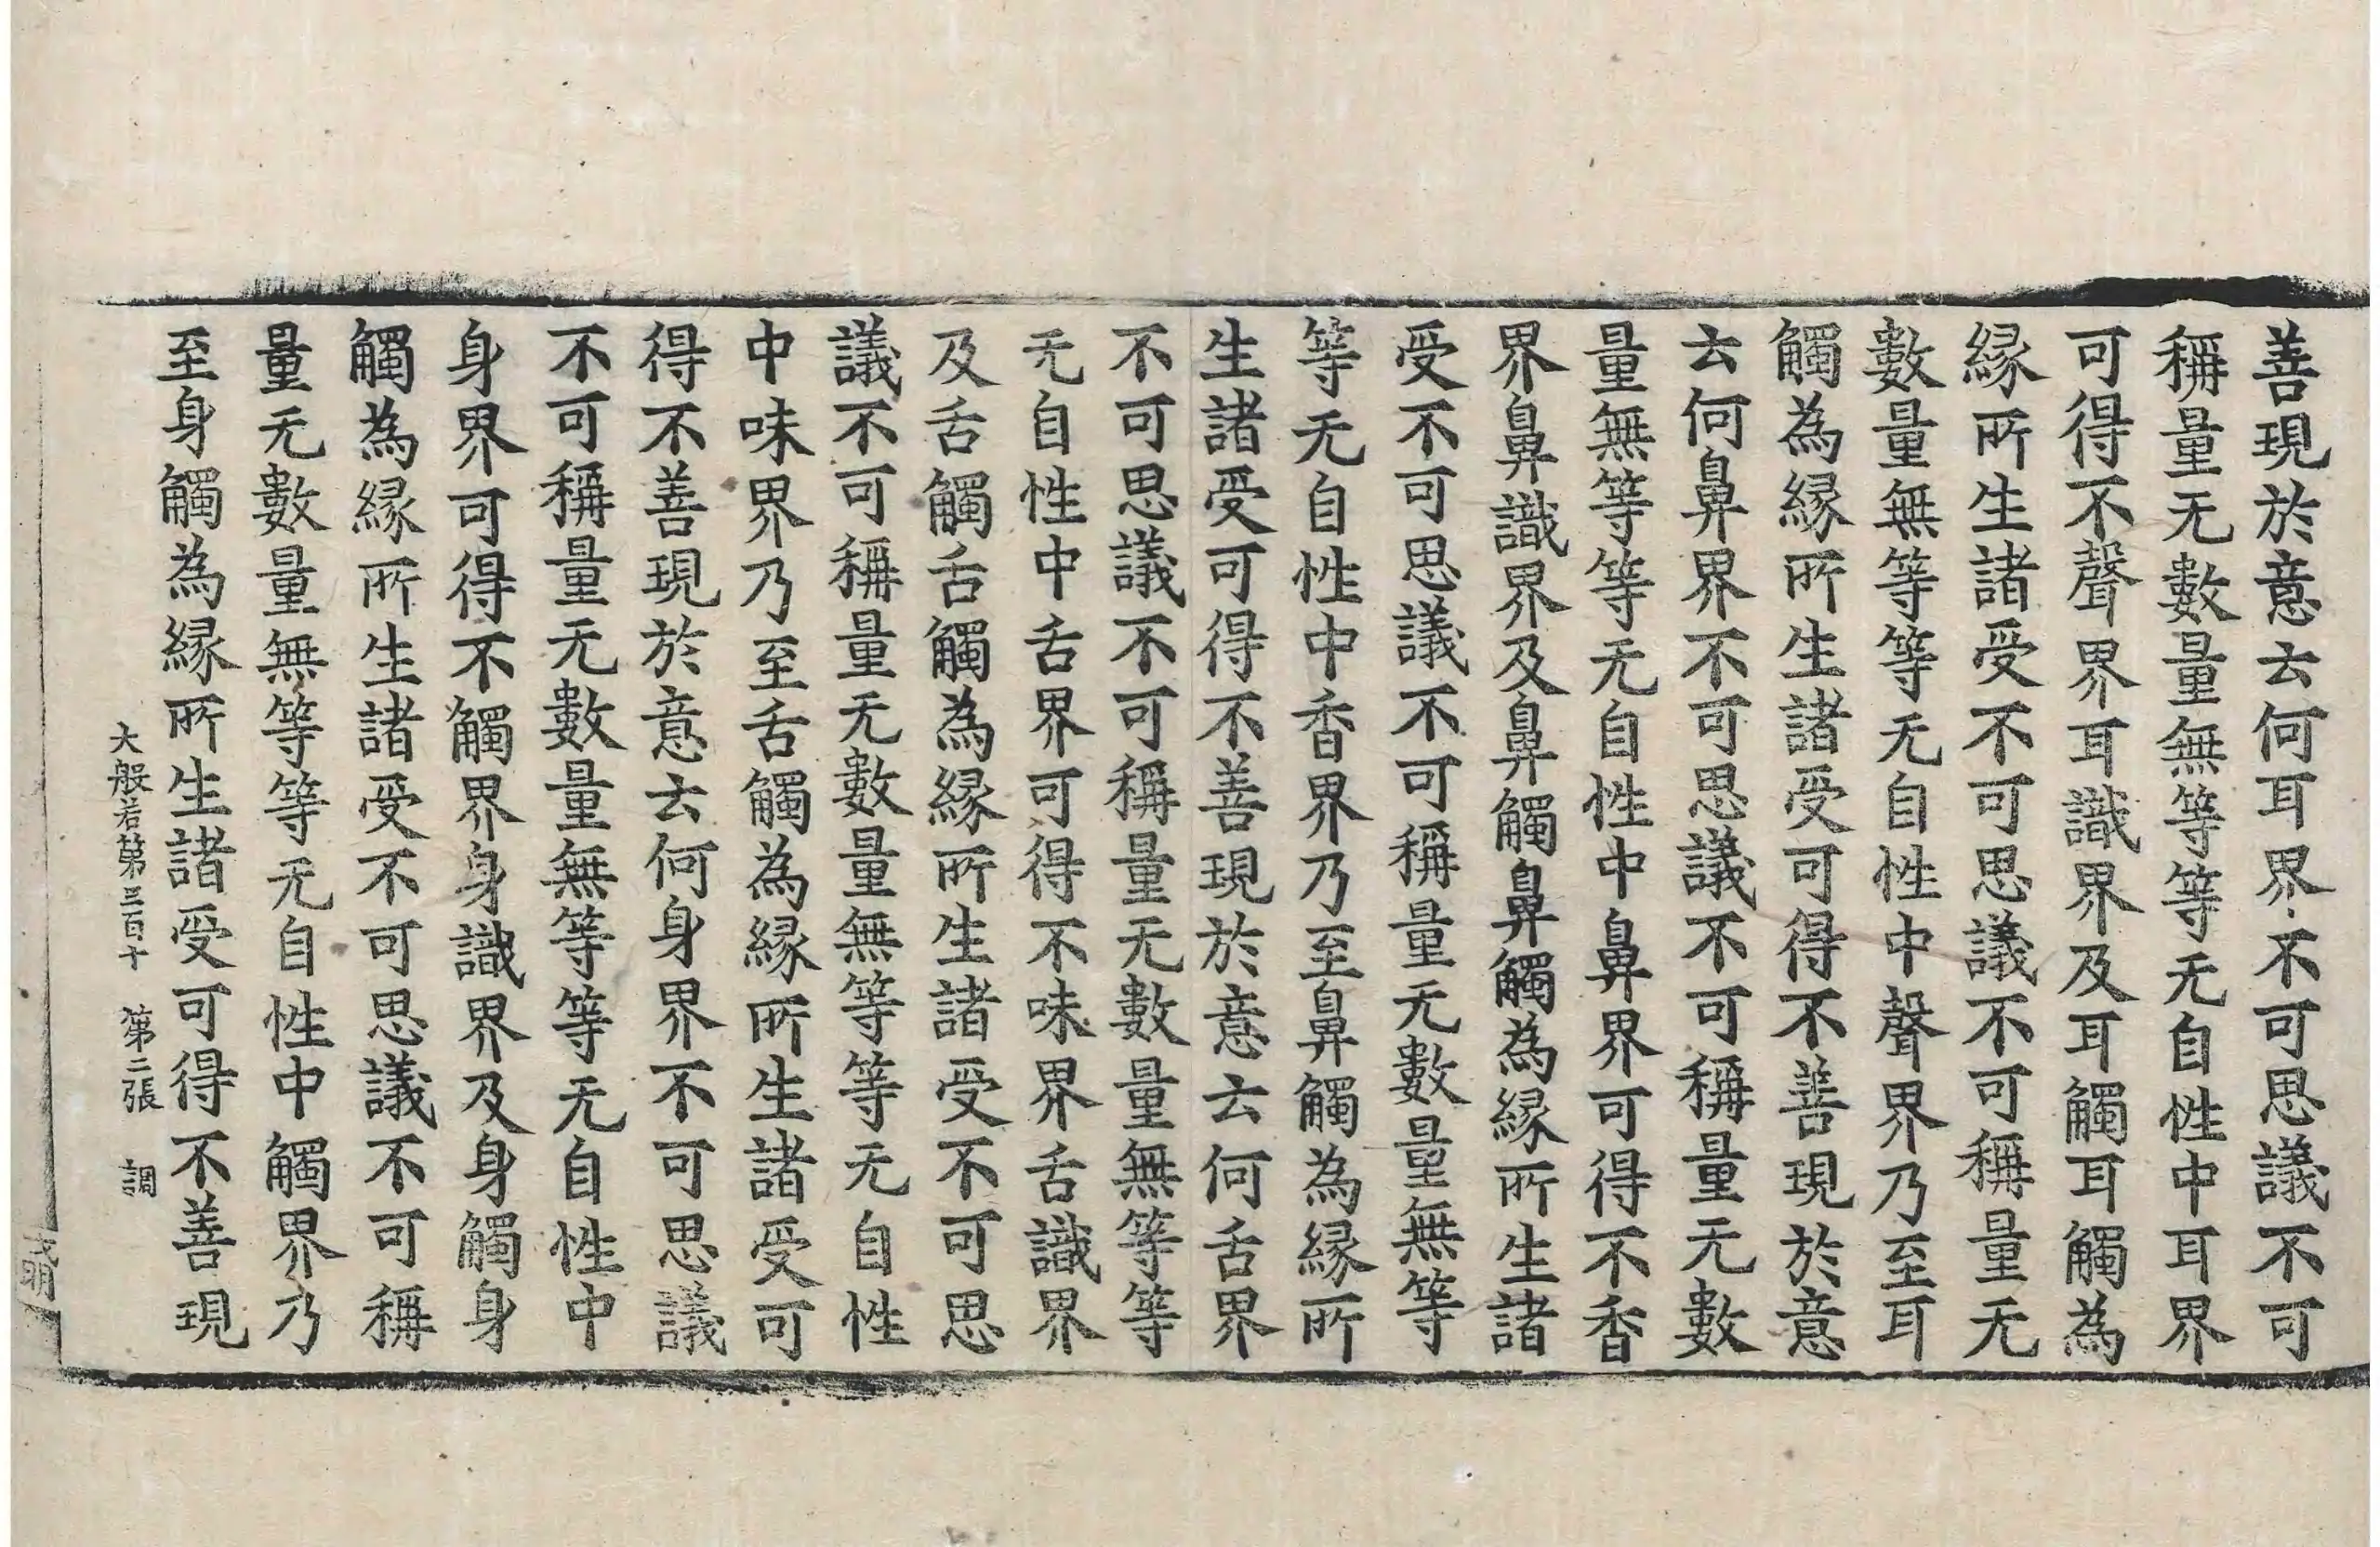 善現於意云何耳界不可思議不可
稱量无數量無等等无自性中耳界
可得不聲界耳識界及耳觸耳觸為
緣所生諸受不可思議不可稱量无
數量無等等无自性中聲界乃至耳
觸為緣所生諸受可得不善現於意
云何鼻界不可思議不可稱量无數
量無等等无自性中鼻界可得不香
界鼻識界及鼻觸鼻觸為緣所生諸
受不可思議不可稱量无數量無等
等无自性中香界乃至鼻觸為緣所
生諸受可得不善現於意云何舌界
不可思議不可稱量无數量無等等
无自性中舌界可得不味界舌識界
及舌觸舌觸為緣所生諸受不可思
議不可稱量无數量無等等无自性
中味界乃至舌觸為緣所生諸受可
得不善現於意云何身界不可思議
不可稱量无數量無等等无自性中
身界可得不觸界身識界及身觸身
觸為緣所生諸受不可思議不可稱
量无數量無等等无自性中觸界乃
至身觸為緣所生諸受可得不善現
大般若第三百十 第二張 調